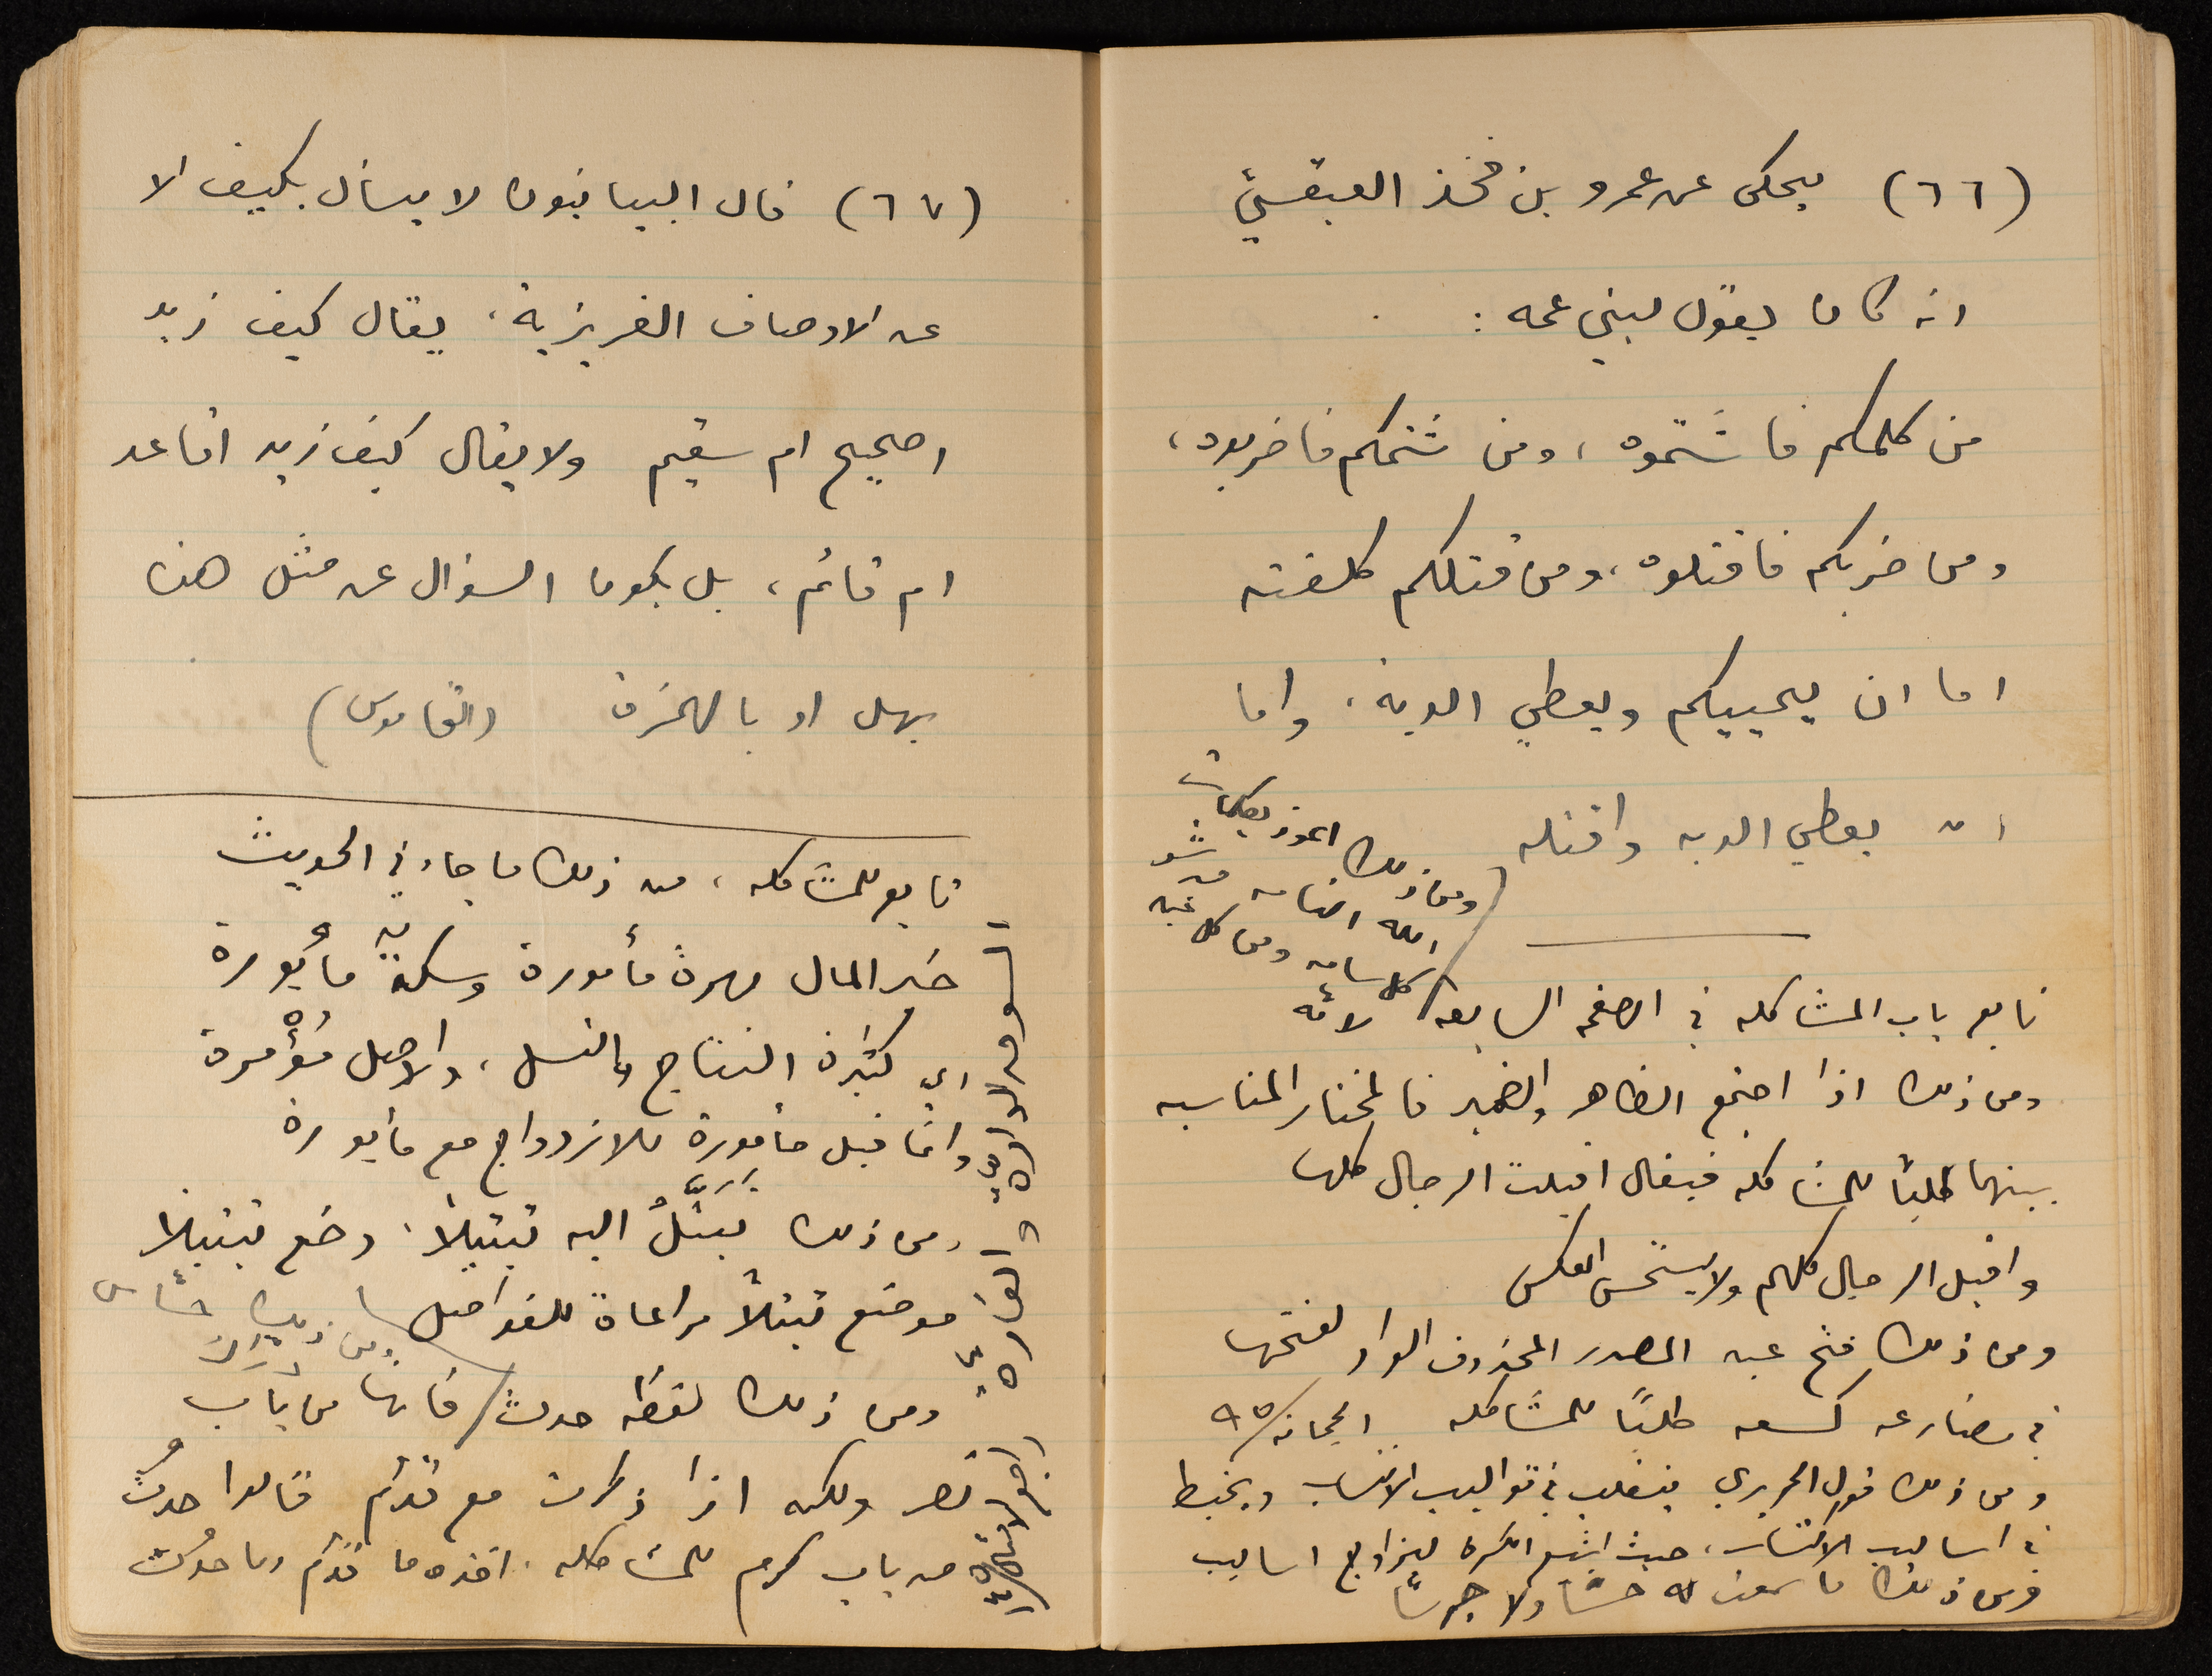 (٦٦) يحكى عن عمرو بن فخذ العبقسي
انه كان يقول لبني عمه :
من كلمكم فاشتموه ، ومن شتمكم فاضربوه ،
ومن ضربكم فاقتلوه ، ومن قتلكم كلفته
اما ان يحييكم ويعطي الدية ، واما
ان يعطي الدية واقتله
ومن ذلك اعوذ بكلمات
الله التامه من شر
كل سامه ومن كل عين
لامه
تابع باب المشاكله في الصفحه السابعه
ومن ذلك اذا اجتمع الظاهر والضمير فالمختار المناسبه
بينهما طلباً للمشاكله فيقال اقبلت الرجال كلها
واقبل الرجال كلهم ولا يستحسن العكس
ومن ذلك فتح عين المصدر المحذوف الواو لفتحها
في مضارعه كسعه طلباً للمشاكله
ومن ذلك قول الحريري يتقلب في قواليب الانتساب ويخبط
في اساليب الاكتساب ، حيث اشبع الكسرة ليزاوج اساليب
ومن ذلك ما سمعت له حسّا ولا جرسا
(٦٧) قال البيانيون لا يسأل بكيف الا
عن الاوصاف الغريزية ، يقال كيف زيد
اصحيح ام سقيم ولا يقال كيف زيد اقاعد
ام قائم ، بل يكون السؤال عن مثل هذا
بهل او بالهمزة (القاموس)
تابع للمشاكله ، من ذلك ما جاء في الحديث
خير المال مهرة مأمورة وسكة مأبورة
اي كثيرة النتاج والنسل ، والاصل مُؤْمرة
وانما قيل مأمورة للازدواج مع مأبورة
ومن ذلك تبتَّلْ اليه تبتيلاً ، وضع تبتيلا
موضع تبتلاً مراعاة للفواصل
ومن ذلك لفظه حدث فانها من باب
نصر ولكن اذا ذكرت مع قدُم قالوا حدُث
من باب كرم للمشاكله . اخذه ما قدُم وما حدُث